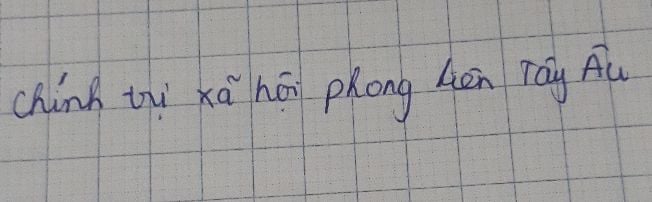 chính trị xã hội phong kiến Tây Âu